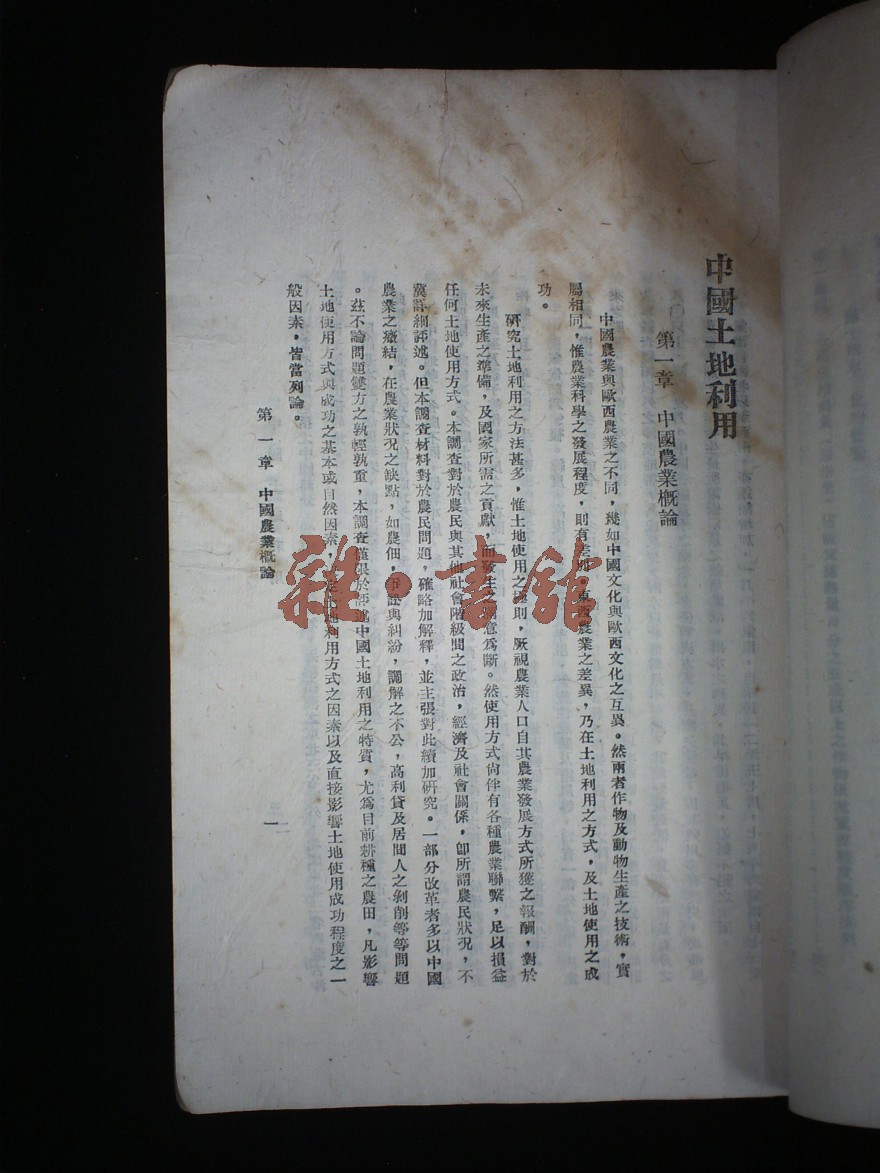 中國土地利用
第一章　中國農業概論
中國農業與歐西農業之不同，幾如中國文化與歐西文化之互異。然兩者作物及動物生產之技術，實
屬相同，惟農業科學之發展程度，則有差別。東西農業之差異，乃在土地利用之方式，及土地使用之成
功。
研究土地利用之方法甚多，惟土地使用之極則，厥視農業人口自其農業發展方式所獲之報酬，對於
未來生產之準備，及國家所需之貢獻，而發生之滿意為斷。然使用方式尚伴有各種農業聯繫，足以損益
任何土地使用方式。本調查對於農民與其他社會階級間之政治，經濟及社會關係，卽所謂農民狀況，不
冀詳細評述。但本調查材料對於農民問題，確略加解釋，並主張對此續加研究。一部分改革者多以中國
農業之癥結，在農業狀況之缺點，如農佃，與糾紛，調解之不公，高利貸及居間人之剝削等等問題
。茲不論問題雙方之孰輕孰重，本調查僅限於評述中國土地利用之特質，尤為目前耕種之農田，凡影響
土地使用方式與成功之基本或自然因素，土地利用方式之因素以及直接影響土地使用成功程度之一
般因素，皆當列論。
第一章　中國農業概論
一
雜·書館